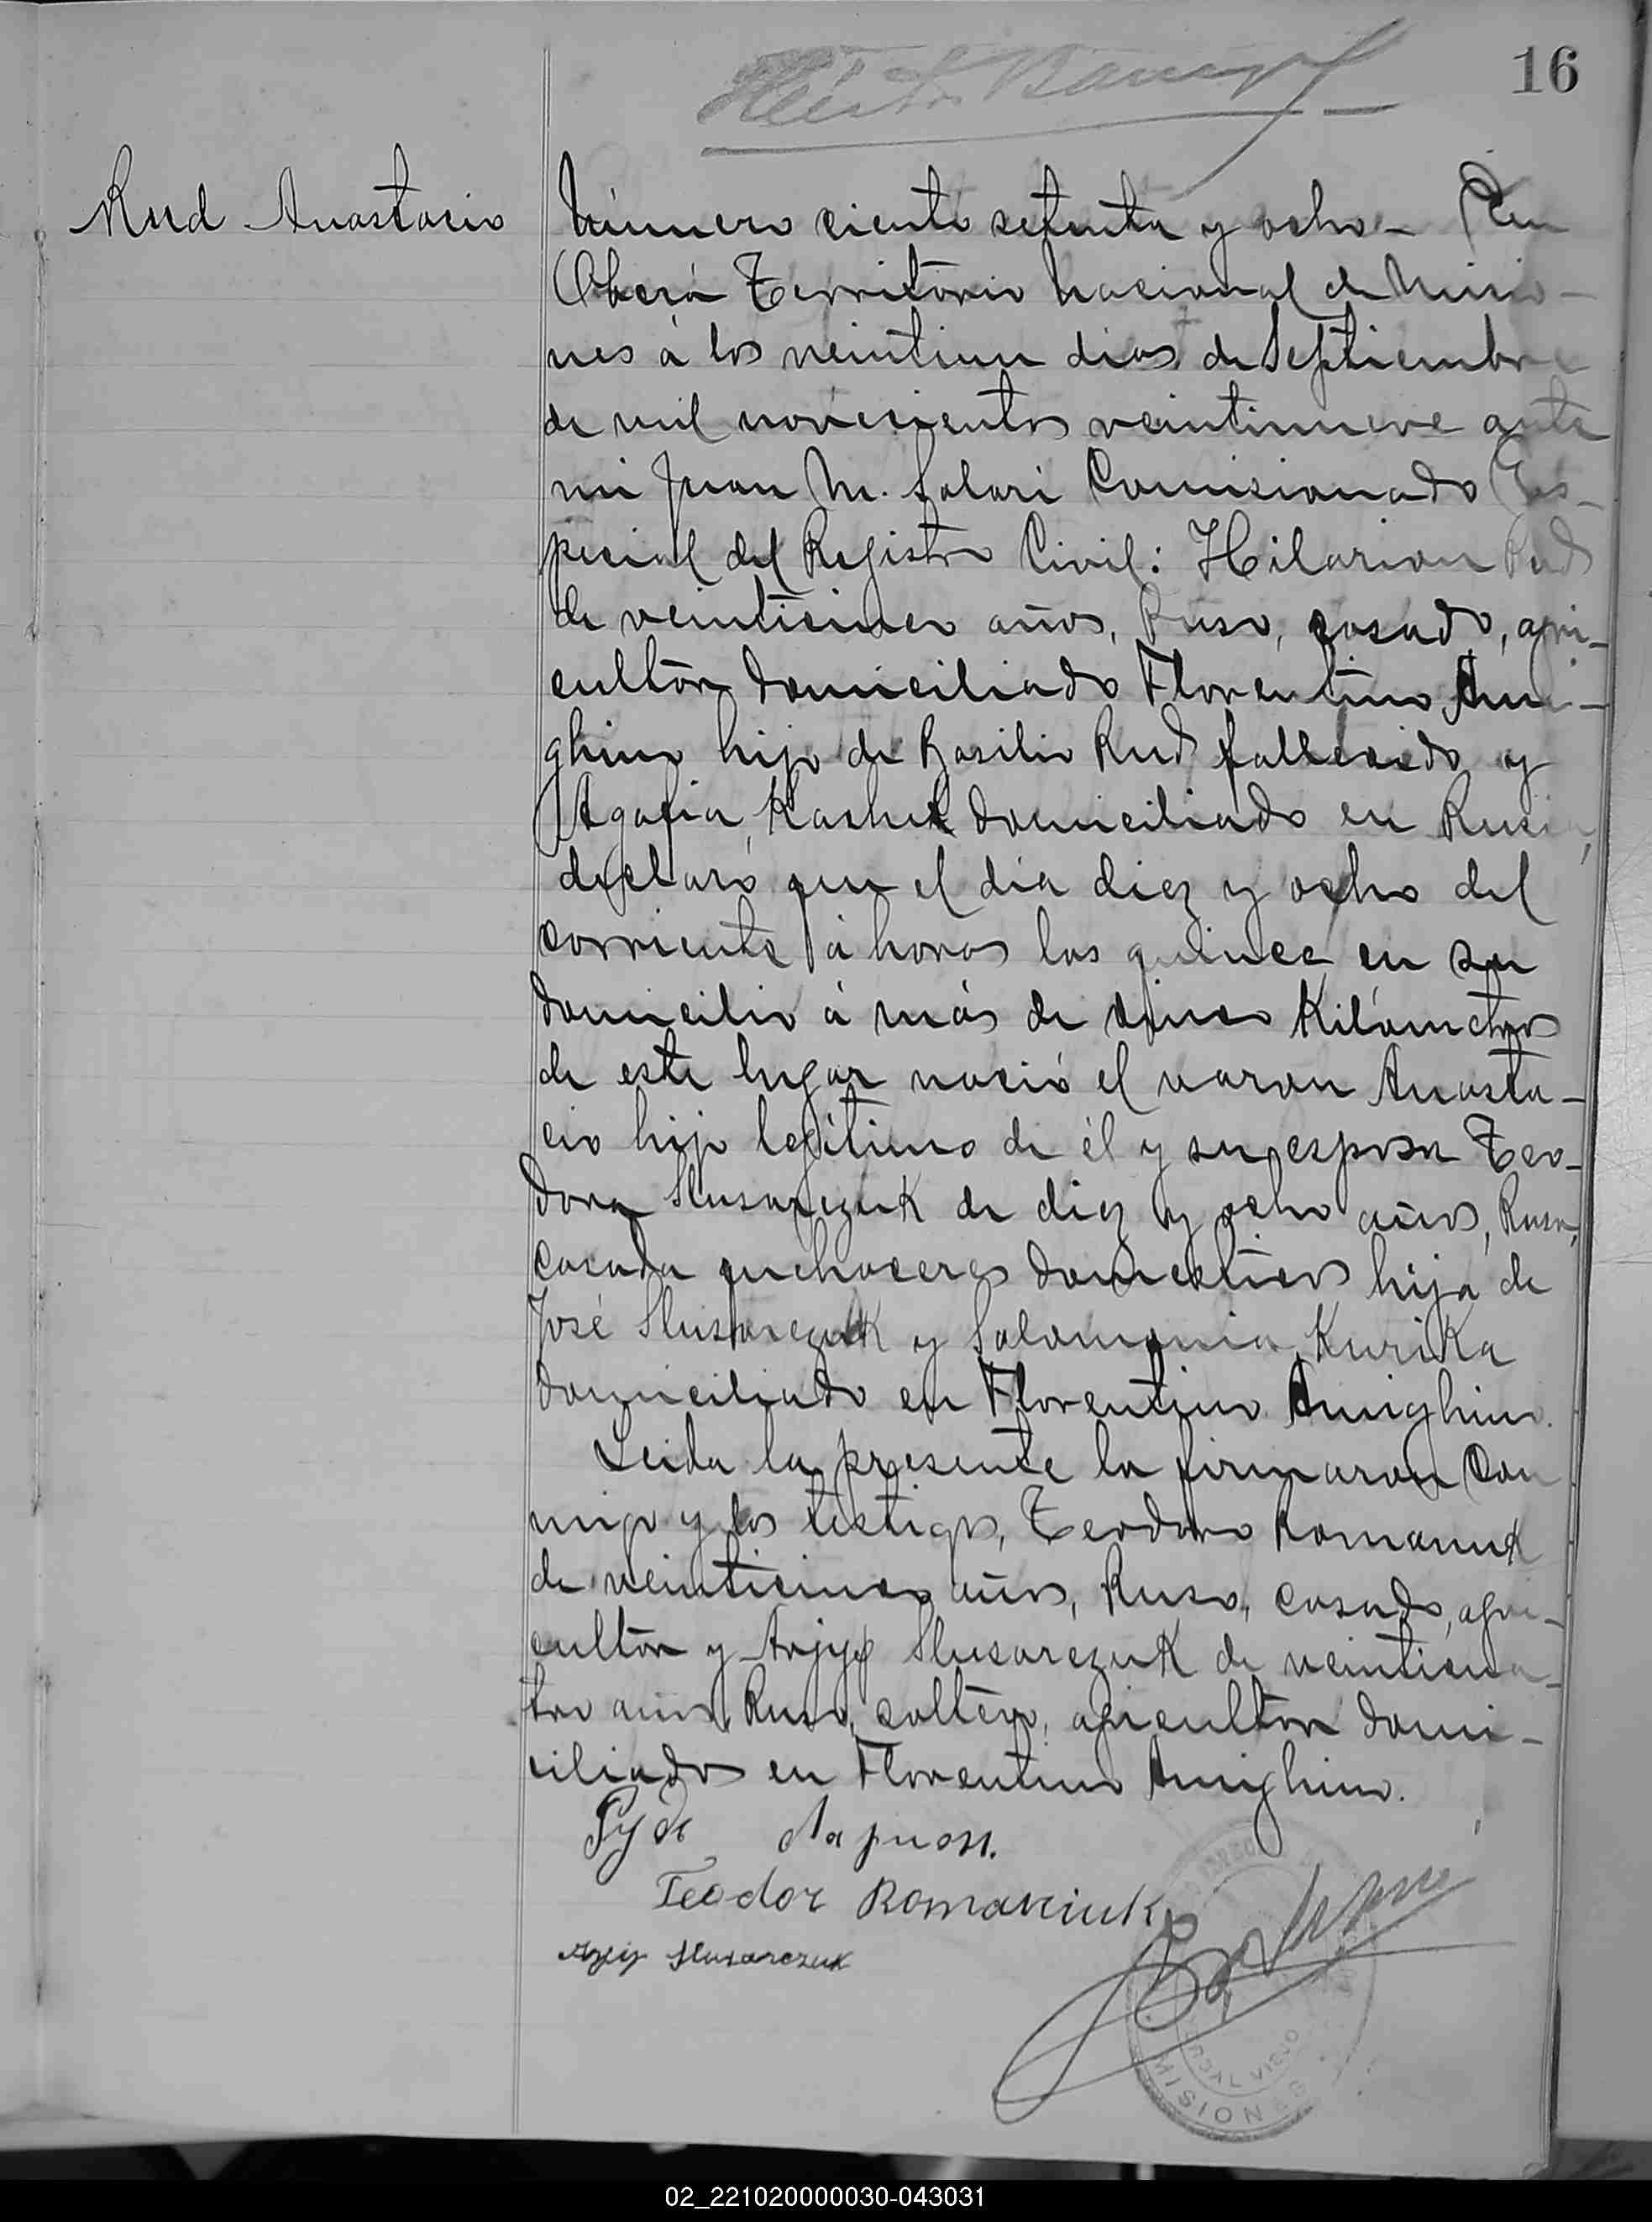 16
Rud Anastacio
Número ciento setenta y ocho - En
Oberá Territorio Nacional de Misio-
nes á los veintiun dias de Septiembre
de mil novecientos veintinueve ante
mi Juan M. Solari Comisionado Es-
pecial del Registro Civil: Hilarion Rud
de veinticinco años, Ruso, casado, agri-
cultor domiciliado Florentino Ame-
ghino hijo de Basilio Rud fallecido y
Agafia Kashuk domiciliado en Rusia,
declaró que el día diez y ocho del
corriente á horas las quince en su
domicilio á más de cinco Kilómetros
de este lugar nació el varon Anasta-
cio hijo legítimo de él y su esposa Teo-
dora Slusarczuk de diez y ocho años, Rusa,
casada quehaceres domesticos hija de
José Slusarczuk y Salomonia Kurika
domiciliado en Florentino Ameghino.
Leida la presente la firmaron con
migo y los testigos, Teodoro Romanuk
de veinticinco años, Ruso, casado, agri-
cultor y Arjyp Slusarczuk de veinticua-
tro años, Ruso, soltero, agricultor domi-
ciliados en Florentino Ameghino.
Рудь Ларион.
Teodor Romaniuk
Slusarczuk
MISIONES
02_221020000030-043031